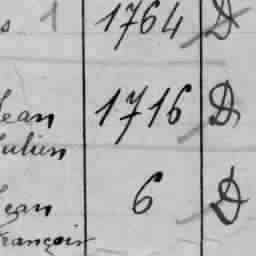 s 1 1764 D
Jean 1716 D
Julien
Jean 6 D
François